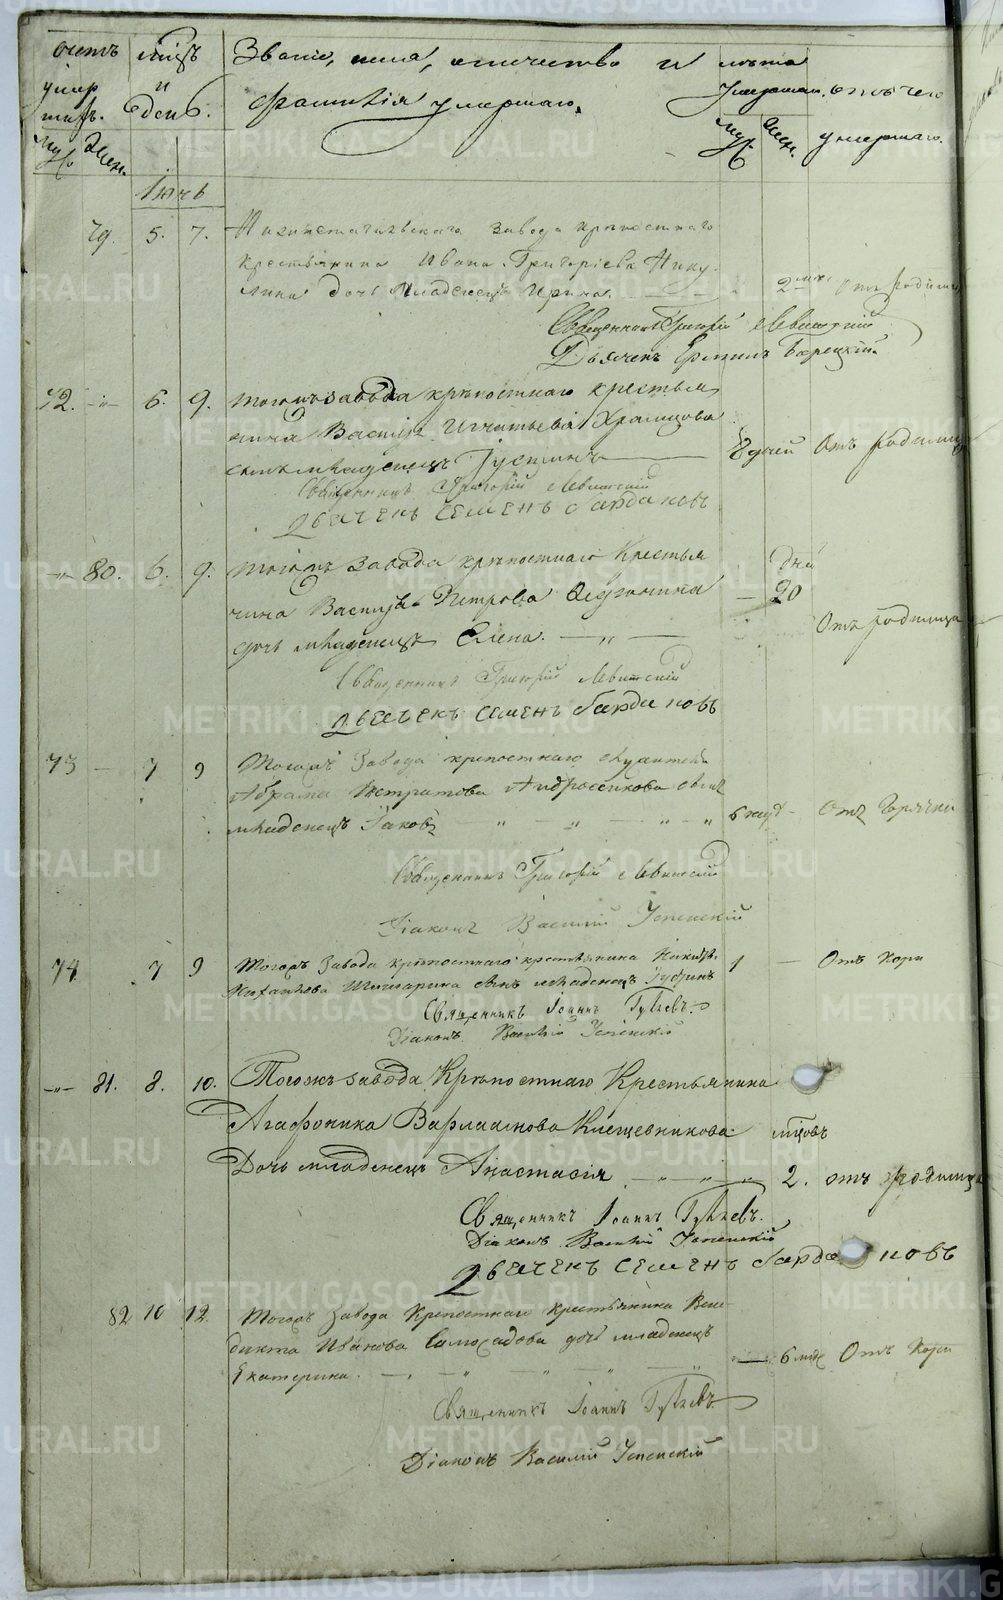 Счетъ мѣсяцъ Званіе, имя, отечество и лѣта
умер и фамилія умершаго. умершаго. отъ чего
шихъ. день. муж. жен. умершаго.
муж. жен.
Іюнь
79. 5. 7. завода крѣпостнаго
крестьянина Ивана Григоріева Нику
лина дочь младенецъ Ирина. 2 отъ родимца
Священникъ Григорій Левитскій
Дьячекъ Ермилъ
72. 6. 9. Тогожъ завода крѣпостнаго крестья
нина Василія Игнатьева Храмцова
сынъ младенецъ Іустинъ 8 дней Отъ родимца
Священникъ Григорій Левитскій
Дьячекъ Семенъ Бардаковъ
80. 6. 9. Тогожъ завода крѣпостнаго крестья дней
нина Василья Петрова 20
дочь младенецъ Елена. Отъ родимца
Священникъ Григорій Левитскій
Дьячекъ Семенъ Бардаковъ
73 7 9 Тогожъ завода крепостнаго
Абрама сынъ
младенецъ Іаковъ 6 Отъ Горячки
Священникъ Григорій Левитскій
Діаконъ Василій Успенскій
74 7 9 Тогожъ завода крѣпостнаго крестьянина 1 Отъ кори
сынъ младенецъ
Священникъ Іоаннъ
Діаконъ Василій Успенскій
81. 8. 10. Тогожъ завода Крѣпостнаго Крестьянина
Агафоника Варлаамова Клещевникова мцовъ
Дочь младенецъ Анастасія 2. отъ родимца
Священникъ Іоаннъ
Діаконъ Василій Успенскій
Дьячекъ Семенъ Бардаковъ
82 10 12. Тогожъ завода Крепостнаго крестьянина Вене
дикта Иванова Самосадова дочь младенецъ
Екатерина. 6 Отъ Кори
Священникъ Іоаннъ
Діаконъ Василій Успенскій
METRIKI.GASO-URAL.RU